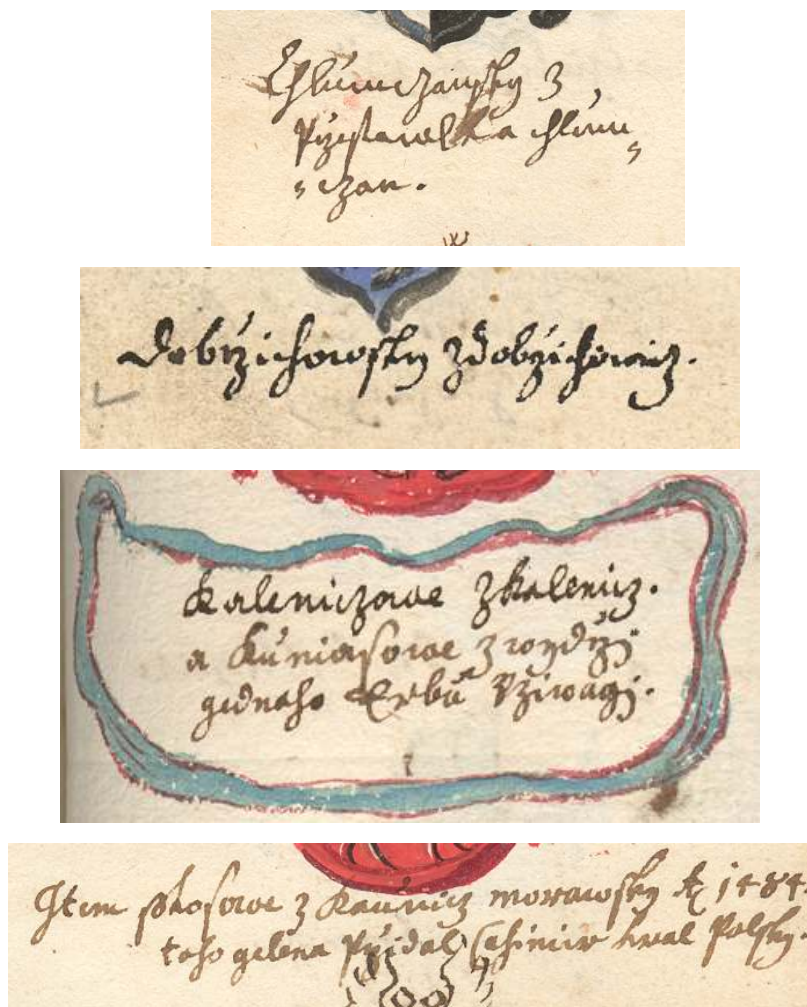 Chlumczansky z
Przestawlk a chlum„
„czan.
Dobrzichowsky zdobrzichowicz.
Kaleniczowe zkalenicz.
a Kuniasowe z
gednaho Erbu Vziwagj.
Jtem z Kaunicz morawsky 1484
toho gelena Przidal Casimir kral Polsky.